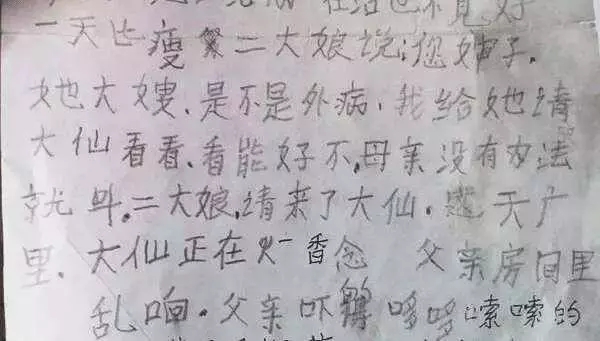 治也不见好
一天比瘦 二大娘说：您婶子.
她大嫂.是不是外病.我给她请
大仙看看.看能好不.母亲没有办法
就叫.二大娘.请来了大仙. 天广
里.大仙正在火香念 父亲房间里
乱响.父亲吓得哆哆嗦嗦的